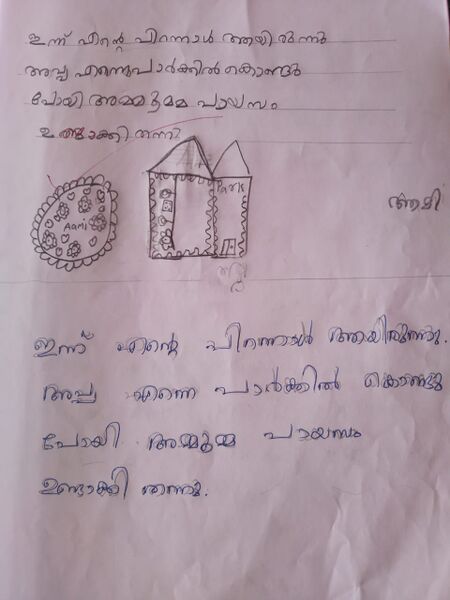 ഇന്ന് എന്റെ പിറന്നാൾ ആയിരുന്നു
അപ്പ എന്നെപാർക്കിൽ കൊണ്ടു
പോയി അമ്മൂമ്മ പായസം
ഉണ്ടാക്കി തന്നു
Aami
Park
ആമി
ഇന്ന് എന്റെ പിറന്നാൾ ആയിരുന്നു.
അപ്പ എന്നെ പാർക്കിൽ കൊണ്ടു
പോയി അമ്മൂമ്മ പായസം
ഉണ്ടാക്കി തന്നു.